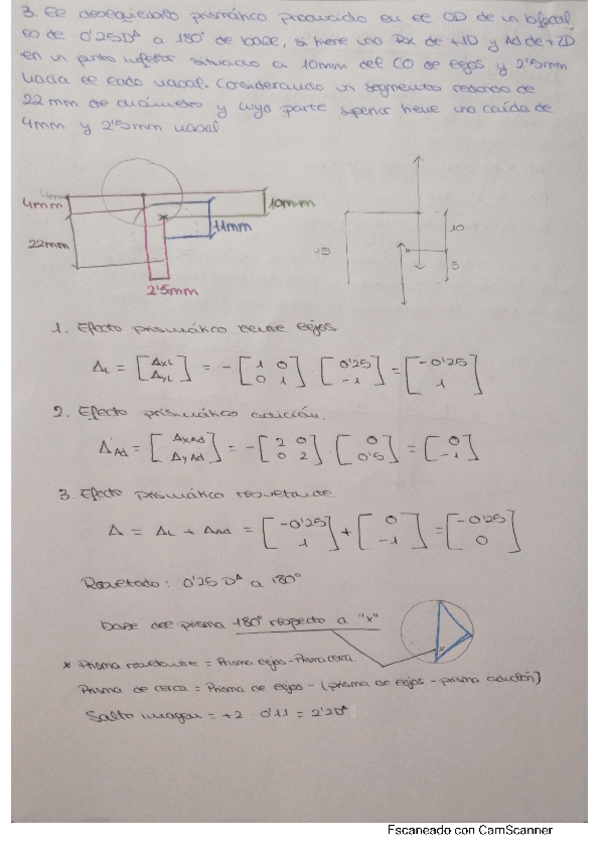 3. El desequilibrio prismático producido en el OD de un bifocal
es de 0'25D^Δ a 180° de base, si tiene una Rx de +1D y Ad de +2D
en un punto inferior situado a 10mm del CO de lejos y 2'5mm
hacia el lado nasal. Considerando un segmento redondo de
22 mm de diámetro y cuya parte superior tiene una caída de
4mm y 2'5mm nasal
4mm
4mm
10mm
11mm
22mm
2'5mm
x
15
10
5
x
1. Efecto prismático lente lejos.
Δ_L = [Δ_XL Δ_YL] = - [1 0 0 1] · [0'25 -1] = [-0'25 1]
2. Efecto prismático adición.
Δ'_Ad = [Δ_X Ad Δ_Y Ad] = - [2 0 0 2] · [0 0'5] = [0 -1]
3. Efecto prismático resultante
Δ = Δ_L + Δ_Ad = [-0'25 1] + [0 -1] = [-0'25 0]
Resultado: 0'25 D^Δ a 180°
base del prisma 180° respecto a "x"
x
* Prisma resultante = Prisma lejos - Prisma cerca.
Prisma de cerca = Prisma de lejos - (prisma de lejos - prisma adición)
Salto imagen = +2 · 0'11 = 2'2D^Δ
Escaneado con CamScanner